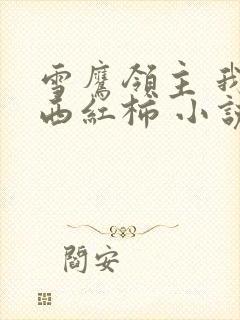 雪鷹領主 我
西紅柿 小説
閻安